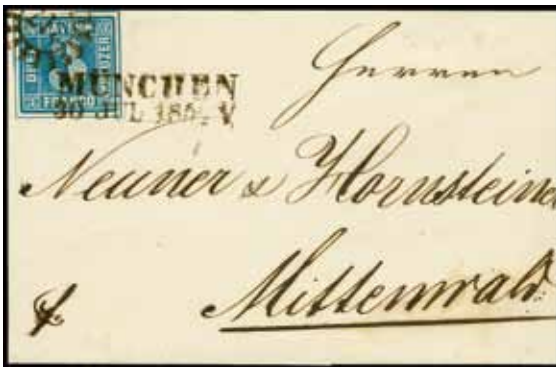 BAYERN
FRANCO
MÜNCHEN
30 JUL 185 V
Herren
Neuner & Hornstein
Mittenwald